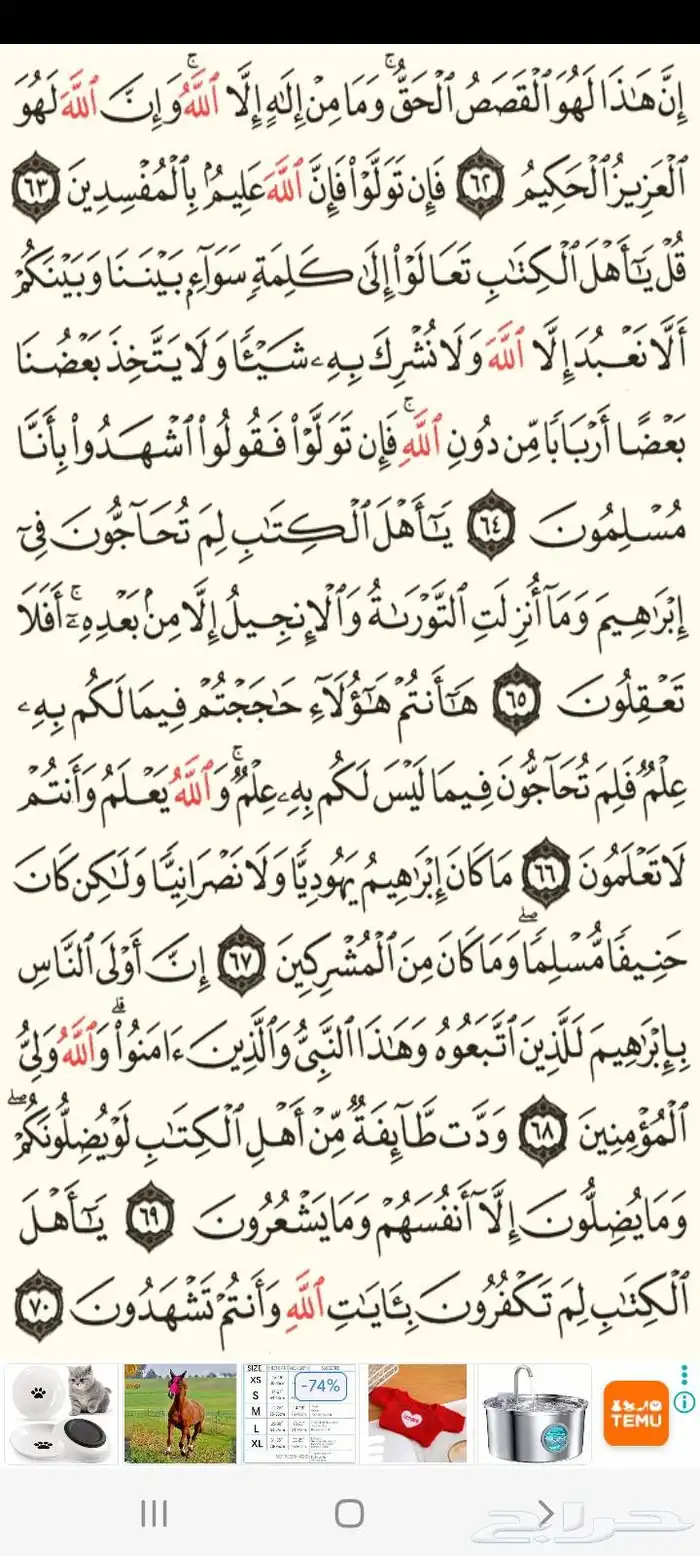 إِنَّ هَٰذَا لَهُوَ ٱلْقَصَصُ ٱلْحَقُّ ۚ وَمَا مِنْ إِلَٰهٍ إِلَّا ٱللَّهُ ۚ وَإِنَّ ٱللَّهَ لَهُوَ
ٱلْعَزِيزُ ٱلْحَكِيمُ ٦٢ فَإِن تَوَلَّوْا۟ فَإِنَّ ٱللَّهَ عَلِيمٌۢ بِٱلْمُفْسِدِينَ ٦٣
قُلْ يَٰٓأَهْلَ ٱلْكِتَٰبِ تَعَالَوْا۟ إِلَىٰ كَلِمَةٍ سَوَآءٍۭ بَيْنَنَا وَبَيْنَكُمْ
أَلَّا نَعْبُدَ إِلَّا ٱللَّهَ وَلَا نُشْرِكَ بِهِۦ شَيْـًٔا وَلَا يَتَّخِذَ بَعْضُنَا
بَعْضًا أَرْبَابًا مِّن دُونِ ٱللَّهِ ۚ فَإِن تَوَلَّوْا۟ فَقُولُوا۟ ٱشْهَدُوا۟ بِأَنَّا
مُسْلِمُونَ ٦٤ يَٰٓأَهْلَ ٱلْكِتَٰبِ لِمَ تُحَآجُّونَ فِىٓ
إِبْرَٰهِيمَ وَمَآ أُنزِلَتِ ٱلتَّوْرَىٰةُ وَٱلْإِنجِيلُ إِلَّا مِنۢ بَعْدِهِۦٓ ۚ أَفَلَا
تَعْقِلُونَ ٦٥ هَٰٓأَنتُمْ هَٰٓؤُلَآءِ حَٰجَجْتُمْ فِيمَا لَكُم بِهِۦ
عِلْمٌ فَلِمَ تُحَآجُّونَ فِيمَا لَيْسَ لَكُم بِهِۦ عِلْمٌ ۚ وَٱللَّهُ يَعْلَمُ وَأَنتُمْ
لَا تَعْلَمُونَ ٦٦ مَا كَانَ إِبْرَٰهِيمُ يَهُودِيًّا وَلَا نَصْرَانِيًّا وَلَٰكِن كَانَ
حَنِيفًا مُّسْلِمًا ۖ وَمَا كَانَ مِنَ ٱلْمُشْرِكِينَ ٦٧ إِنَّ أَوْلَى ٱلنَّاسِ
بِإِبْرَٰهِيمَ لَلَّذِينَ ٱتَّبَعُوهُ وَهَٰذَا ٱلنَّبِىُّ وَٱلَّذِينَ ءَامَنُوا۟ ۗ وَٱللَّهُ وَلِىُّ
ٱلْمُؤْمِنِينَ ٦٨ وَدَّت طَّآئِفَةٌ مِّنْ أَهْلِ ٱلْكِتَٰبِ لَوْ يُضِلُّونَكُمْ ۖ
وَمَا يُضِلُّونَ إِلَّآ أَنفُسَهُمْ وَمَا يَشْعُرُونَ ٦٩ يَٰٓأَهْلَ
ٱلْكِتَٰبِ لِمَ تَكْفُرُونَ بِـَٔايَٰتِ ٱللَّهِ وَأَنتُمْ تَشْهَدُونَ ٧٠
SIZE
XS
S
M
L
XL
-74%
TEMU
حراج